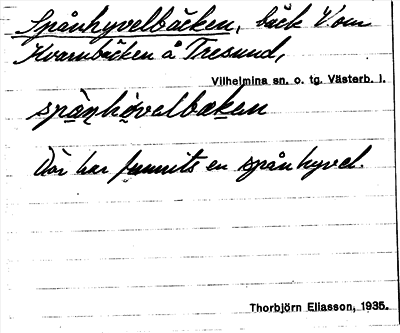 Spånhyvelbäcken, bäck V om
Kvarnbäcken å Tresund,
Vilhelmina sn. o. tg. Västerb. l.
spånhövelbäken
Där har funnits en spånhyvel.
Thorbjörn Eliasson, 1935.